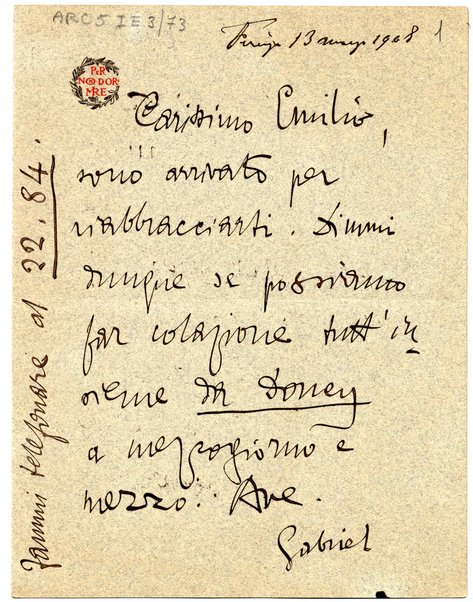 ARC 5 I E 3/73
Firenze 13 marzo 1908
1
PER
NON DOR
MIRE
Carissimo Emilio,
sono arrivato per
riabbracciarti. Dimmi
dunque se possiamo
far colazione tutt'in
sieme da Doney
a mezzogiorno e
mezzo. Ave.
Gabriel
Fammi telefonare al 22.84.